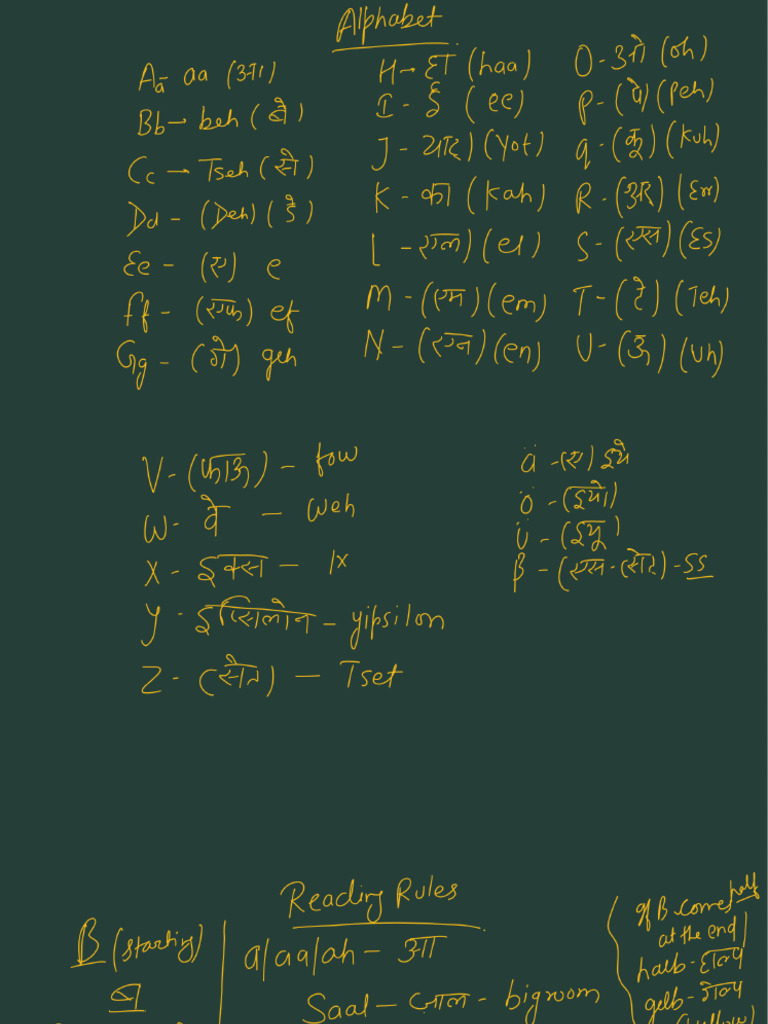 Alphabet
Aa - aa (आ)
Bb → beh (बे)
Cc → Tseh (से)
Dd - (Deh) (डे)
Ee - (ए) e
Ff - (एफ) ef
Gg - (गे) geh
H → हा (haa)
I - ई (ee)
J - याट) (Yot)
K - का (Kah)
L - एल) (el)
M - (एम) (em)
N - (एन) (en)
O - ओ (oh)
P - (पे) (Peh)
q - (कू) (Kuh)
R - (अर) (Err)
S - (एस) (ES)
T - (टे) (Teh)
U - (ऊ) (uh)
V - (फाऊ) - fow
W - वे - weh
X - इक्स - Ix
Y - इप्सिलोन - yipsilon
Z - (सेत) - Tset
ä - (ए) इये
ö - (इयो)
ü - (इयू)
ß - (एस-सेट) - SS
Reading Rules
B (starting)
ब
a/aa/ah - आ
Saal - ज़ाल - bigroom
If B comes half
at the end)
halb - हाल्प
gelb - गेल्प
(yellow)